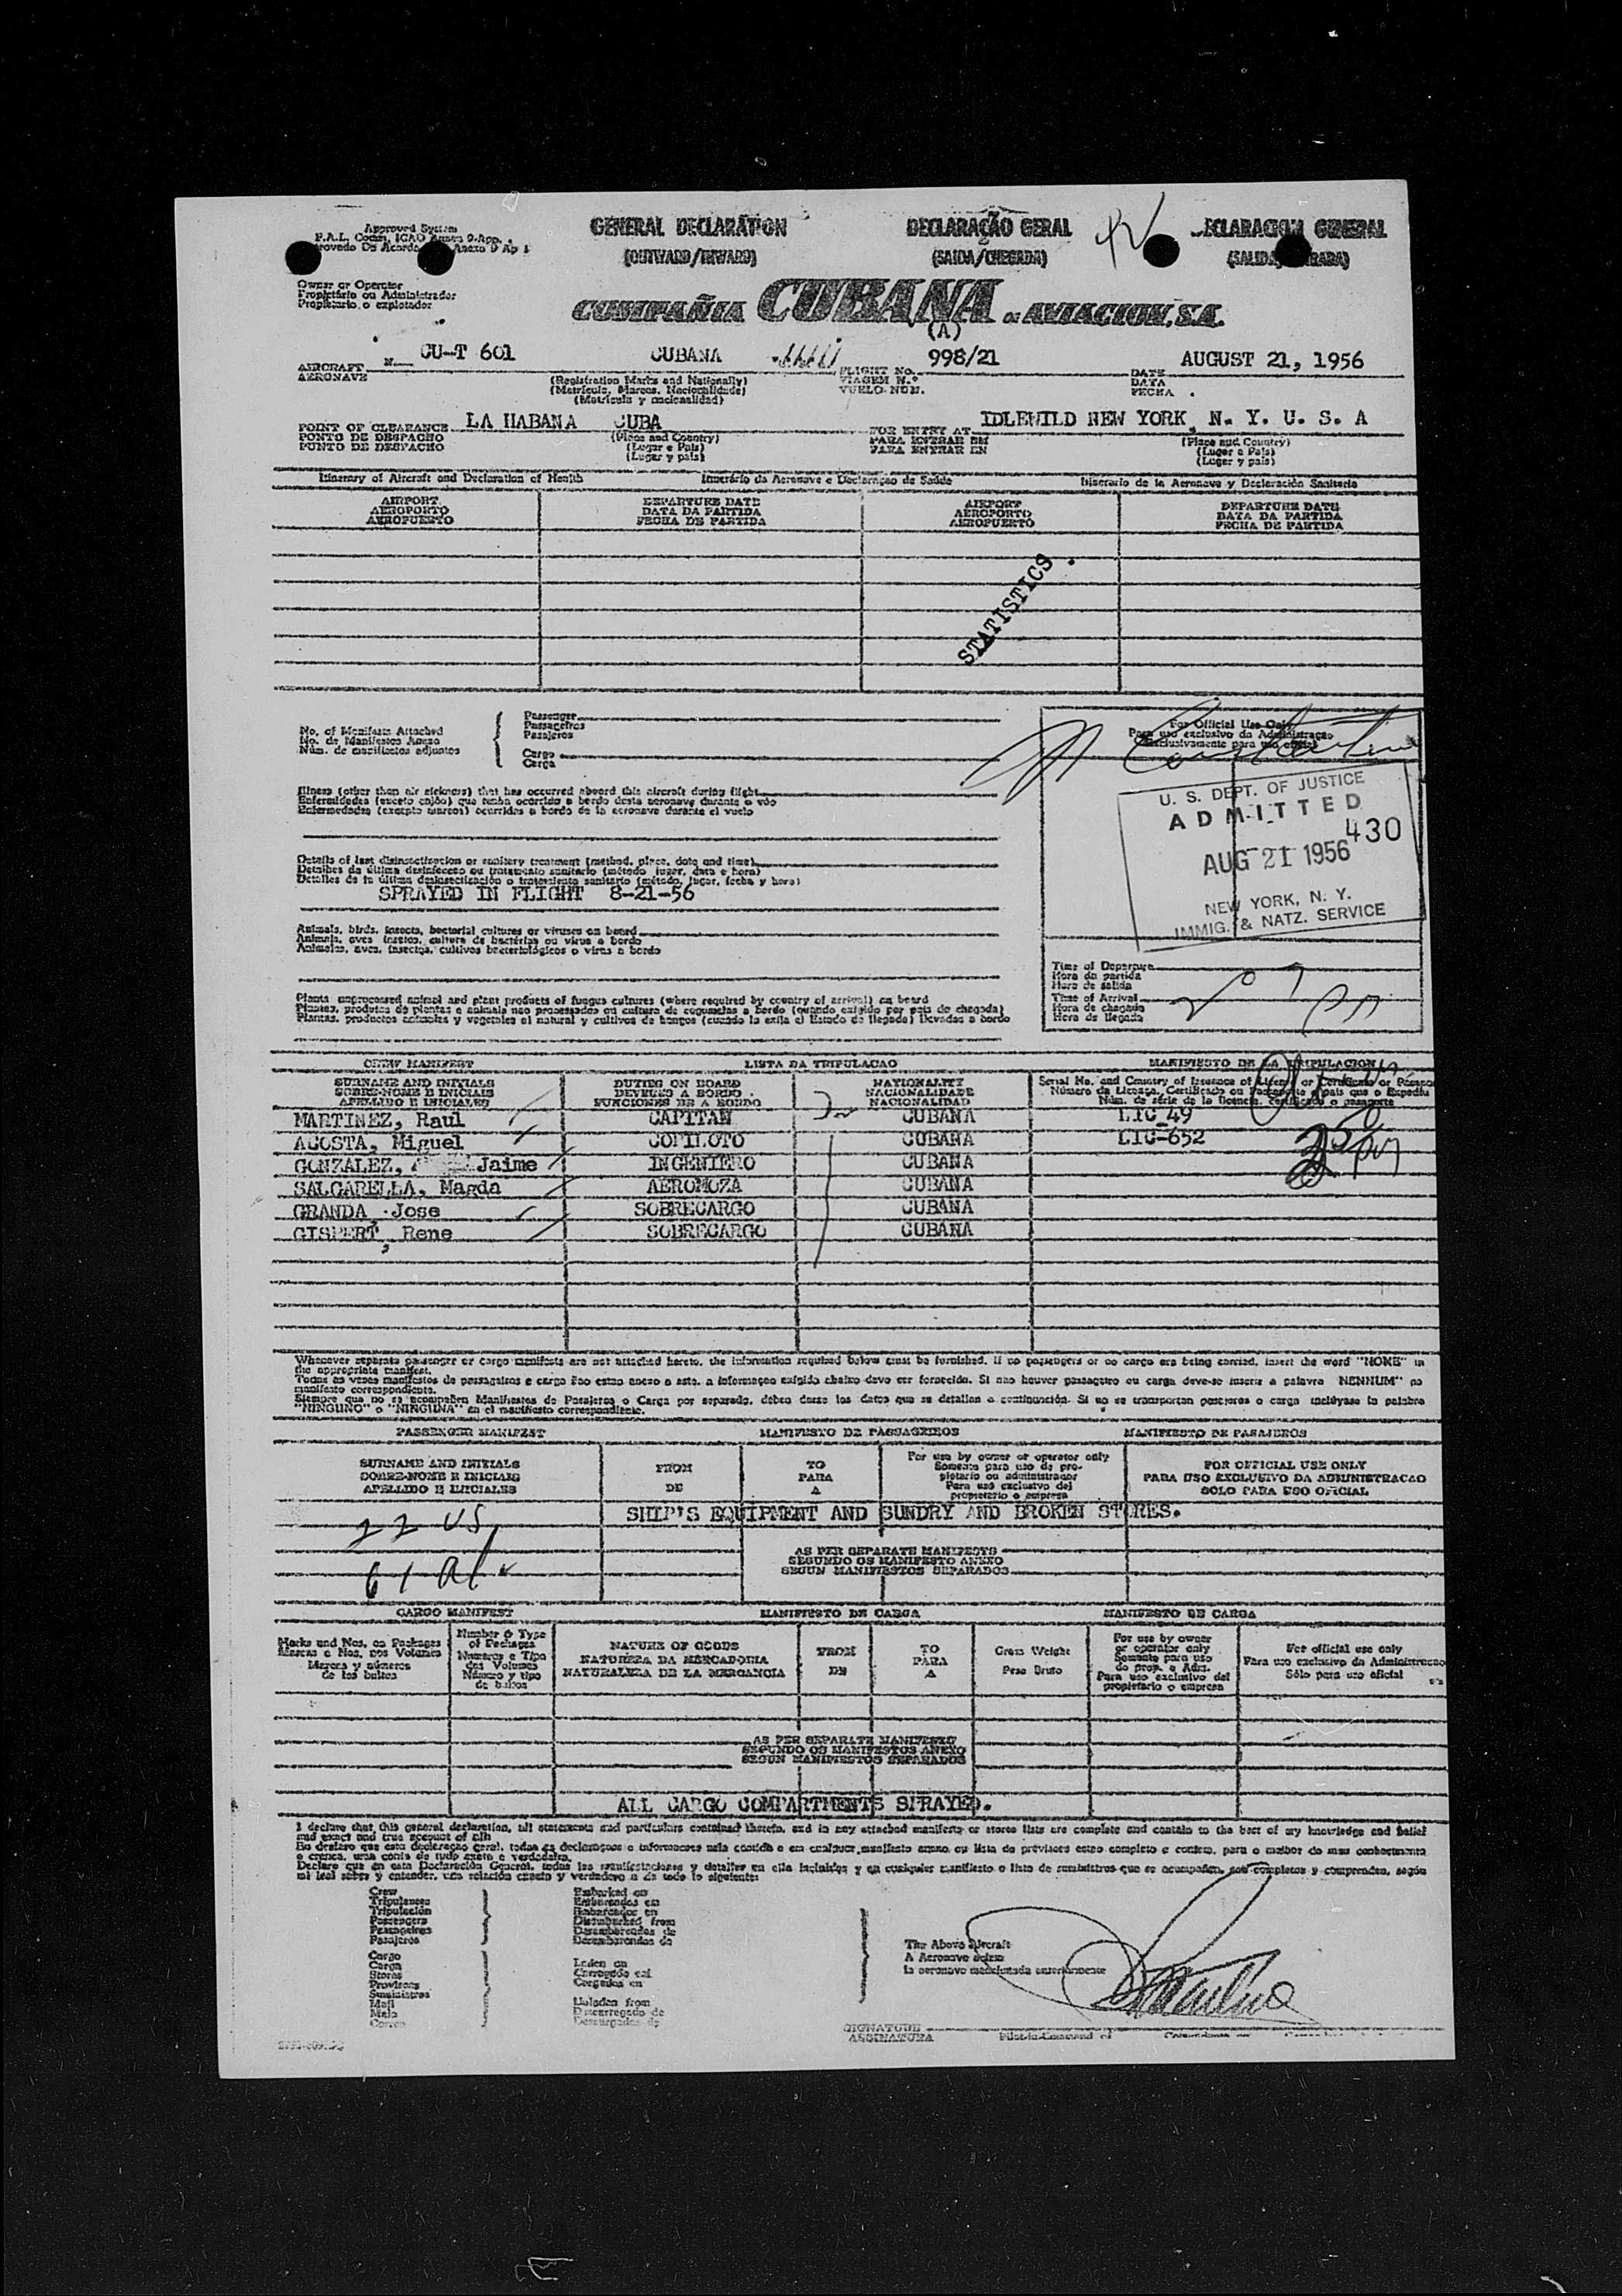 Approved System
F.A.L. Comm. ICAO Annex 9-App.
GENERAL DECLARATION
DECLARAÇÃO GERAL
ECLARACION GENERAL
(OUTWARD/INWARD)
(SAIDA/CHEGADA)
Owner or Operator
Propietário ou Administrador
Propietario o explotador
COMPAÑIA CUBANA DE AVIACION, S.A.
(A)
AIRCRAFT
AERONAVE
CU-T 601
CUBANA
FLIGHT No.
VIAGEM N.º
VUELO NUM.
998/21
DATE
DATA
FECHA
AUGUST 21, 1956
(Registration Marks and Nationality)
(Matrícula, Marcas, Nacionalidade)
(Matrícula y nacionalidad)
POINT OF CLEARANCE
PONTO DE DESPACHO
PUNTO DE DESPACHO
LA HABANA CUBA
(Place and Country)
(Lugar e País)
(Lugar y país)
FOR ENTRY AT
PARA ENTRAR EM
PARA ENTRAR EN
IDLEWILD NEW YORK, N. Y. U. S. A
(Place and Country)
(Lugar e País)
(Lugar y país)
Itinerary of Aircraft and Declaration of Health
Itinerário da Aeronave e Declaraçao de Saúde
Itinerario de la Aeronave y Declaración Sanitaria
AIRPORT
AEROPORTO
AEROPUERTO
DEPARTURE DATE
DATA DA PARTIDA
FECHA DE PARTIDA
AIRPORT
AEROPORTO
AEROPUERTO
DEPARTURE DATE
DATA DA PARTIDA
FECHA DE PARTIDA
STATISTICS
No. of Manifests Attached
No. de Manifestos Anexo
Núm. de manifiestos adjuntos
Passenger
Passageiros
Pasajeros
Cargo
Carga
For Official Use Only
Para uso exclusivo da Administraçao
Exclusivamente para uso oficial
U. S. DEPT. OF JUSTICE
ADMITTED
430
AUG 21 1956
NEW YORK, N. Y.
IMMIG. & NATZ. SERVICE
Illness (other than air sickness) that has occurred aboard this aircraft during flight
Enfermidades (exceto enjôo) que tenha ocorrido a bordo desta aeronave durante o vôo
Enfermedades (excepto mareos) ocurridas a bordo de la aeronave durante el vuelo
Details of last disinsectization or sanitary treatment (method, place, date and time)
Detalhes da última desinfeccao ou tratamento sanitario (método, lugar, data e hora)
Detalles de la última desinsectización o tratamiento sanitario (método, lugar, fecha y hora)
SPRAYED IN FLIGHT 8-21-56
Animals, birds, insects, bacterial cultures or viruses on board
Animais, aves insetos, cultura de bactérias ou virus a bordo
Animales, aves, insectos, cultivos bacteriológicos o virus a bordo
Time of Departure
Hora da partida
Hora de salida
Time of Arrival
Hora de chegada
Hora de llegada
Plants unprocessed animal and plant products of fungus cultures (where required by country of arrival) on board
Plantas, produtos de plantas e animais nao processados ou cultura de cogumelos a bordo (quando exigido por pais de chegada)
Plantas, productos animales y vegetales al natural y cultivos de hongos (cuando la exija el Estado de llegada) llevados a bordo
CREW MANIFEST
LISTA DA TRIPULACAO
MANIFIESTO DE LA TRIPULACION
SURNAME AND INITIALS
SOBRE-NOME E INICIAIS
APELLIDO E INICIALES
DUTIES ON BOARD
DEVERES A BORDO
FUNCIONES DE A BORDO
NATIONALITY
NACIONALIDADE
NACIONALIDAD
MARTINEZ, Raul CAPITAN CUBANA LIC 49
ACOSTA, Miguel COPILOTO CUBANA LIC-652
GONZALEZ, Jaime INGENIERO CUBANA
SALGARELLA, Magda AEROMOZA CUBANA
GRANDA, Jose SOBRECARGO CUBANA
GISPERT, Rene SOBRECARGO CUBANA
Whenever separate passenger or cargo manifests are not attached hereto, the information required below must be furnished. If no passengers or no cargo are being carried, insert the word "NONE" in
the appropriate manifest.
Siempre que no se acompañen Manifiestos de Pasajeros o Carga por separado, deben darse los datos que se detallan a continuación. Si no se transportan pasajeros o carga inclúyase la palabra
"NINGUNO" o "NINGUNA" en el manifiesto correspondiente.
PASSENGER MANIFEST
MANIFESTO DE PASSAGEIROS
MANIFIESTO DE PASAJEROS
SURNAME AND INITIALS
SOBRE-NOME E INICIAIS
APELLIDO E INICIALES
FROM
DE
TO
PARA
A
For use by owner or operator only
Somente para uso de pro-
pietario ou administrador
Para uso exclusivo del
propietario o empresa
FOR OFFICIAL USE ONLY
PARA USO EXCLUSIVO DA ADMINISTRACAO
SOLO PARA USO OFICIAL
22 US
SHIP'S EQUIPMENT AND SUNDRY AND BROKEN STORES.
AS PER SEPARATE MANIFESTS
SEGUNDO OS MANIFESTO ANEXO
SEGUN MANIFIESTOS SEPARADOS
CARGO MANIFEST
MANIFIESTO DE CARGA
MANIFESTO DE CARGA
Marks and Nos. on Packages
Marcas e Nos. nos Volumes
Marcas y números
de los bultos
Number & Type
of Packages
Numeros e Tipo
dos Volumes
Número y tipo
de bultos
NATURE OF GOODS
NATUREZA DA MERCADORIA
NATURALEZA DE LA MERCANCIA
FROM
DE
TO
PARA
A
Gross Weight
Peso Bruto
For use by owner
or operator only
Somente para uso
do prop. e Adm.
Para uso exclusivo del
propietario o empresa
For official use only
Para uso exclusivo da Administracao
Sólo para uso oficial
AS PER SEPARATE MANIFESTO
SEGUNDO OS MANIFESTOS ANEXO
SEGUN MANIFIESTOS SEPARADOS
ALL CARGO COMPARTMENTS SPRAYED.
I declare that this general declaration, all statements and particulars contained therein, and in any attached manifests or stores lists are complete and contain to the best of my knowledge and belief
Crew
Tripulantes
Tripulación
Passengers
Passageiros
Pasajeros
Cargo
Carga
Stores
Provisoes
Suministros
Mail
Mala
Correo
Embarked on
Embarcados em
Embarcados en
Disembarked from
Desembarcados de
Desembarcados de
Laden on
Carregado em
Cargados en
Unladen from
Descarregado de
Descargados de
The Above Aircraft
A Aeronave acima
la aeronave mencionada anteriormente
SIGNATURE
ASSINATURA
Pilot-in-Command of